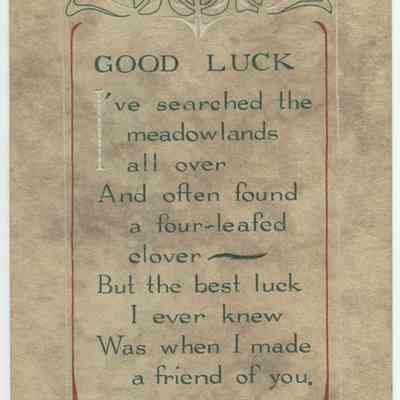 GOOD LUCK
I've searched the
meadowlands
all over
And often found
a four-leafed
clover
But the best luck
I ever knew
Was when I made
a friend of you.